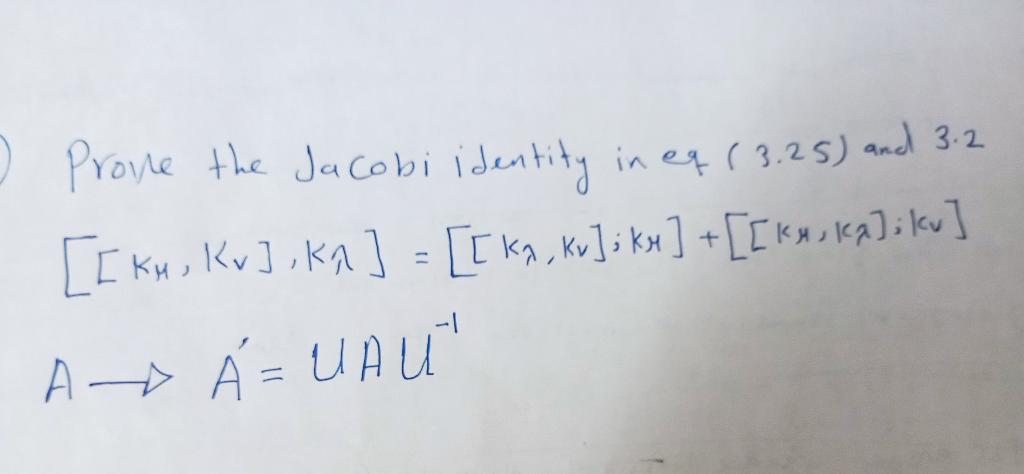 ) Prove the Jacobi identity in eq (3.25) and 3.2
[[Kμ, Kν], Kλ] = [[Kλ, Kν]; Kμ] + [[Kμ, Kλ]; Kν]
A → A' = U A U⁻¹